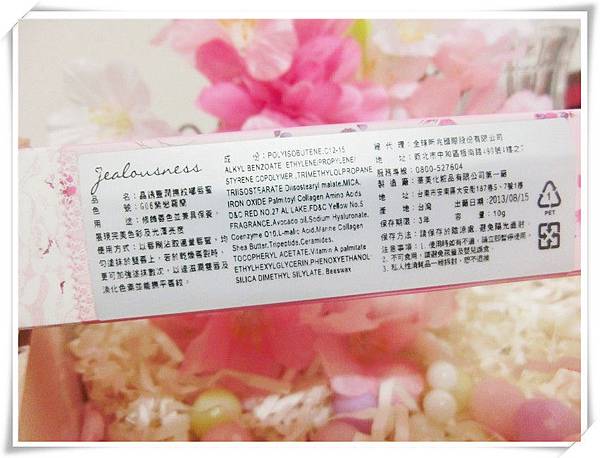 Jealousness
品 名：晶誘豐潤撫紋嘟唇蜜
色 號：G06紫戀羅蘭
用 途：修飾唇色並兼具保養，
展現完美色彩及光澤亮度
使用方式：以唇刷沾取適量唇蜜，均
勻塗抹於雙唇上，若於乾燥唇對時，
更可加強塗抹數次，以達滋潤雙唇及
淡化色素並能撫平唇紋。
成 份：POLYISOBUTENE,C12-15
ALKYL BENZOATE ETHYLENE/PROPYLENE/
STYRENE COPOLYMER ,TRIMETHYLOLPROPANE
TRIISOSTEARATE Diisostearyl malate,MICA,
IRON OXIDE Palmitoyl Collagen Amino Acids
D&C RED NO.27 AL LAKE,FD&C Yellow No.5
FRAGRANCE,Avocado oil,Sodium Hyaluronate,
Coenzyme Q10,L-malic Acid,Marine Collagen
Shea Butter,Tripeptide,Ceramides,
TOCOPHERYL ACETATE,Vitamin A palmitate
ETHYLHEXYLGLYCERIN,PHENOXYETHANOL
SILICA DIMETHYL SILYLATE, Beeswax
總 代 理：全球昕兆國際股份有限公司
地 址：新北市中和區板南路490號4樓之
服務專線：0800-527604
製 造 廠：華美化粧品有限公司第一廠
地 址：台南市安南區大安街187巷5、7號1樓
產 地：台灣 出廠日期：2013/08/15
保存期限：3年 容 量：10g
保存方法：請保存於陰涼處，避免陽光直射。
注意事項：1. 使用時如有不適，請立即暫停使用。
2. 不可食用，請避免孩童及嬰兒誤食。
3. 私人性消耗品一經拆封，恕不退換
1
PET